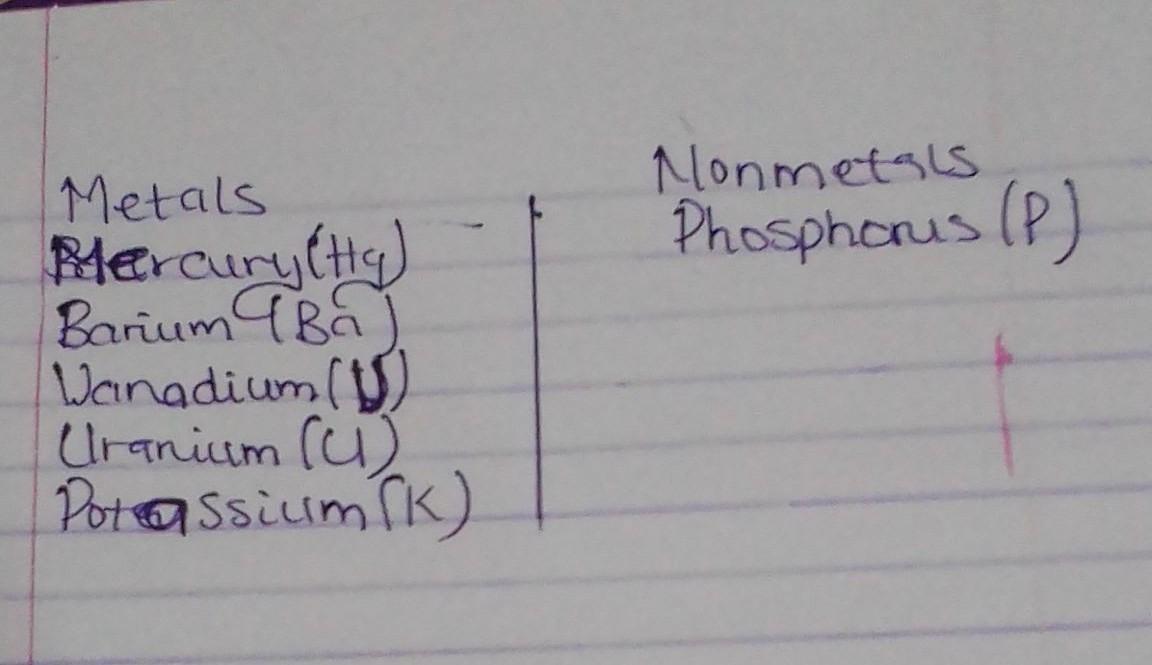 Metals
Mercury (Hg)
Barium (Ba)
Vanadium (V)
Uranium (U)
Potassium (K)
Nonmetals
Phosphorus (P)